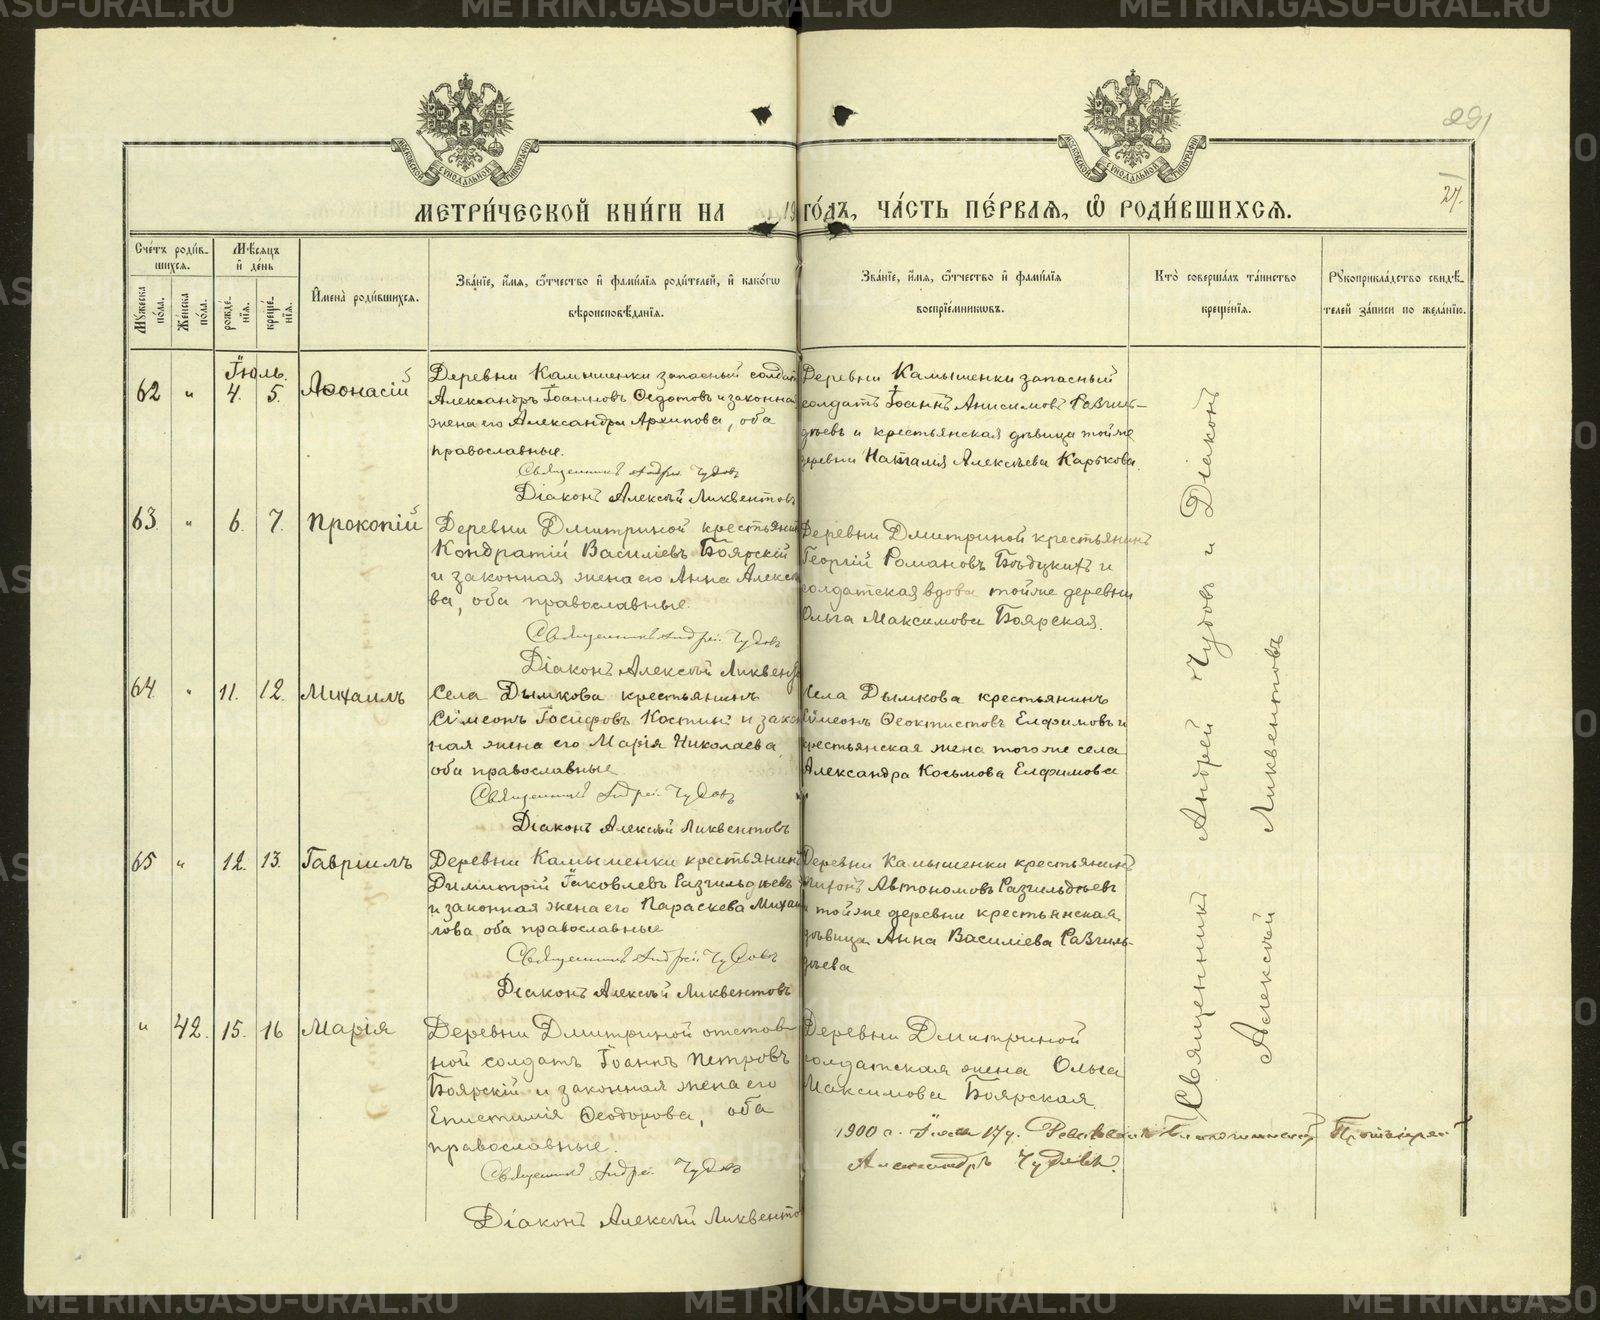 METRIKI.GASU-URAL.RU
МОСКОВСКОЙ СѴНОДАЛЬНОЙ ТИПОГРАФІИ
МОСКОВСКОЙ СѴНОДАЛЬНОЙ ТИПОГРАФІИ
291
27.
МЕТРИ́ЧЕСКОЙ КНИ́ГИ НА 19 ГО́ДЪ, ЧА́СТЬ ПЕ́РВАѦ, Ѡ҆ РОДИ́ВШИХСѦ.
Сче́тъ роди́в-
шихсѧ.
Мꙋжеска по́ла.
Же́нска по́ла.
Мѣ́сѧцъ
и҆ де́нь
рожде́-
нїѧ.
креще́-
нїѧ.
И҆мена̀ роди́вшихсѧ.
Зва́нїе, и҆́мѧ, ѻ҆́тчество и҆ фами́лїѧ роди́телей, и҆ како́гѡ
вѣроисповѣ́данїѧ.
Зва́нїе, и҆́мѧ, ѻ҆́тчество и҆ фами́лїѧ
воспрїе́мникѡвъ.
Кто̀ соверша́лъ та́инство
креще́нїѧ.
Рꙋкоприкла́дство свидѣ́-
телей за́писи по жела́нїю.
Іюль.
62 " 4. 5. Аѳонасій
Деревни Камышенки запасный солдат
Александръ Іоанновъ Ѳедотовъ и законна
жена его Александра Архипова, оба
православные.
Священникъ Андрей Чудовъ
Діаконъ Алексѣй Ликвентовъ
Деревни Камышенки запасный
солдатъ Іоаннъ Анисимовъ Разгиль-
дѣевъ и крестьянская дѣвица тойже
деревни Наталія Алексѣева Карькова.
63. " 6. 7. Прокопій
Деревни Дмитриной крестьянин
Кондратій Василіевъ Боярскій
и законная жена его Анна Алексѣ
ва, оба православные.
Священникъ Андрей Чудовъ
Діаконъ Алексѣй Ликвентов
Деревни Дмитриной крестьянинъ
Георгій Романовъ и
солдатская вдова тойже деревни
Ольга Максимова Боярская.
64. " 11. 12. Михаилъ
Села Дымкова крестьянинъ
Сѵмеонъ Іосифовъ Костинъ и закон
ная жена его Марія Николаева
оба православные
Священникъ Андрей Чудовъ
Діаконъ Алексѣй Ликвентовъ
Села Дымкова крестьянинъ
Сѵмеонъ Ѳеоктистовъ Елфимовъ и
крестьянская жена тогоже села
Александра Косьмова Елфимова
65 " 12. 13. Гавріилъ
Деревни Камышенки крестьянинъ
Димитрій Іаковлевъ Разгильдѣевъ
и законная жена его Параскева Михаи
лова оба православные
Священникъ Андрей Чудовъ
Діаконъ Алексѣй Ликвентовъ
Деревни Камышенки крестьянинъ
Автономовъ Разгильдѣевъ
и тойже деревни крестьянская
дѣвица Анна Василіева Разгиль-
дѣева
" 42. 15. 16 Марія
Деревни Дмитриной отстав-
ной солдатъ Іоаннъ Петровъ
Боярскій и законная жена его
Епистимія Ѳеодорова, оба
православные.
Священникъ Андрей Чудовъ
Діаконъ Алексѣй Ликвенто
Деревни Дмитриной
солдатская жена Ольга
Максимова Боярская.
Священникъ Андрей Чудовъ и Діаконъ
Алексѣй Ликвентовъ
1900 г. 17 д. Протоіерей
Александръ Чудовъ.